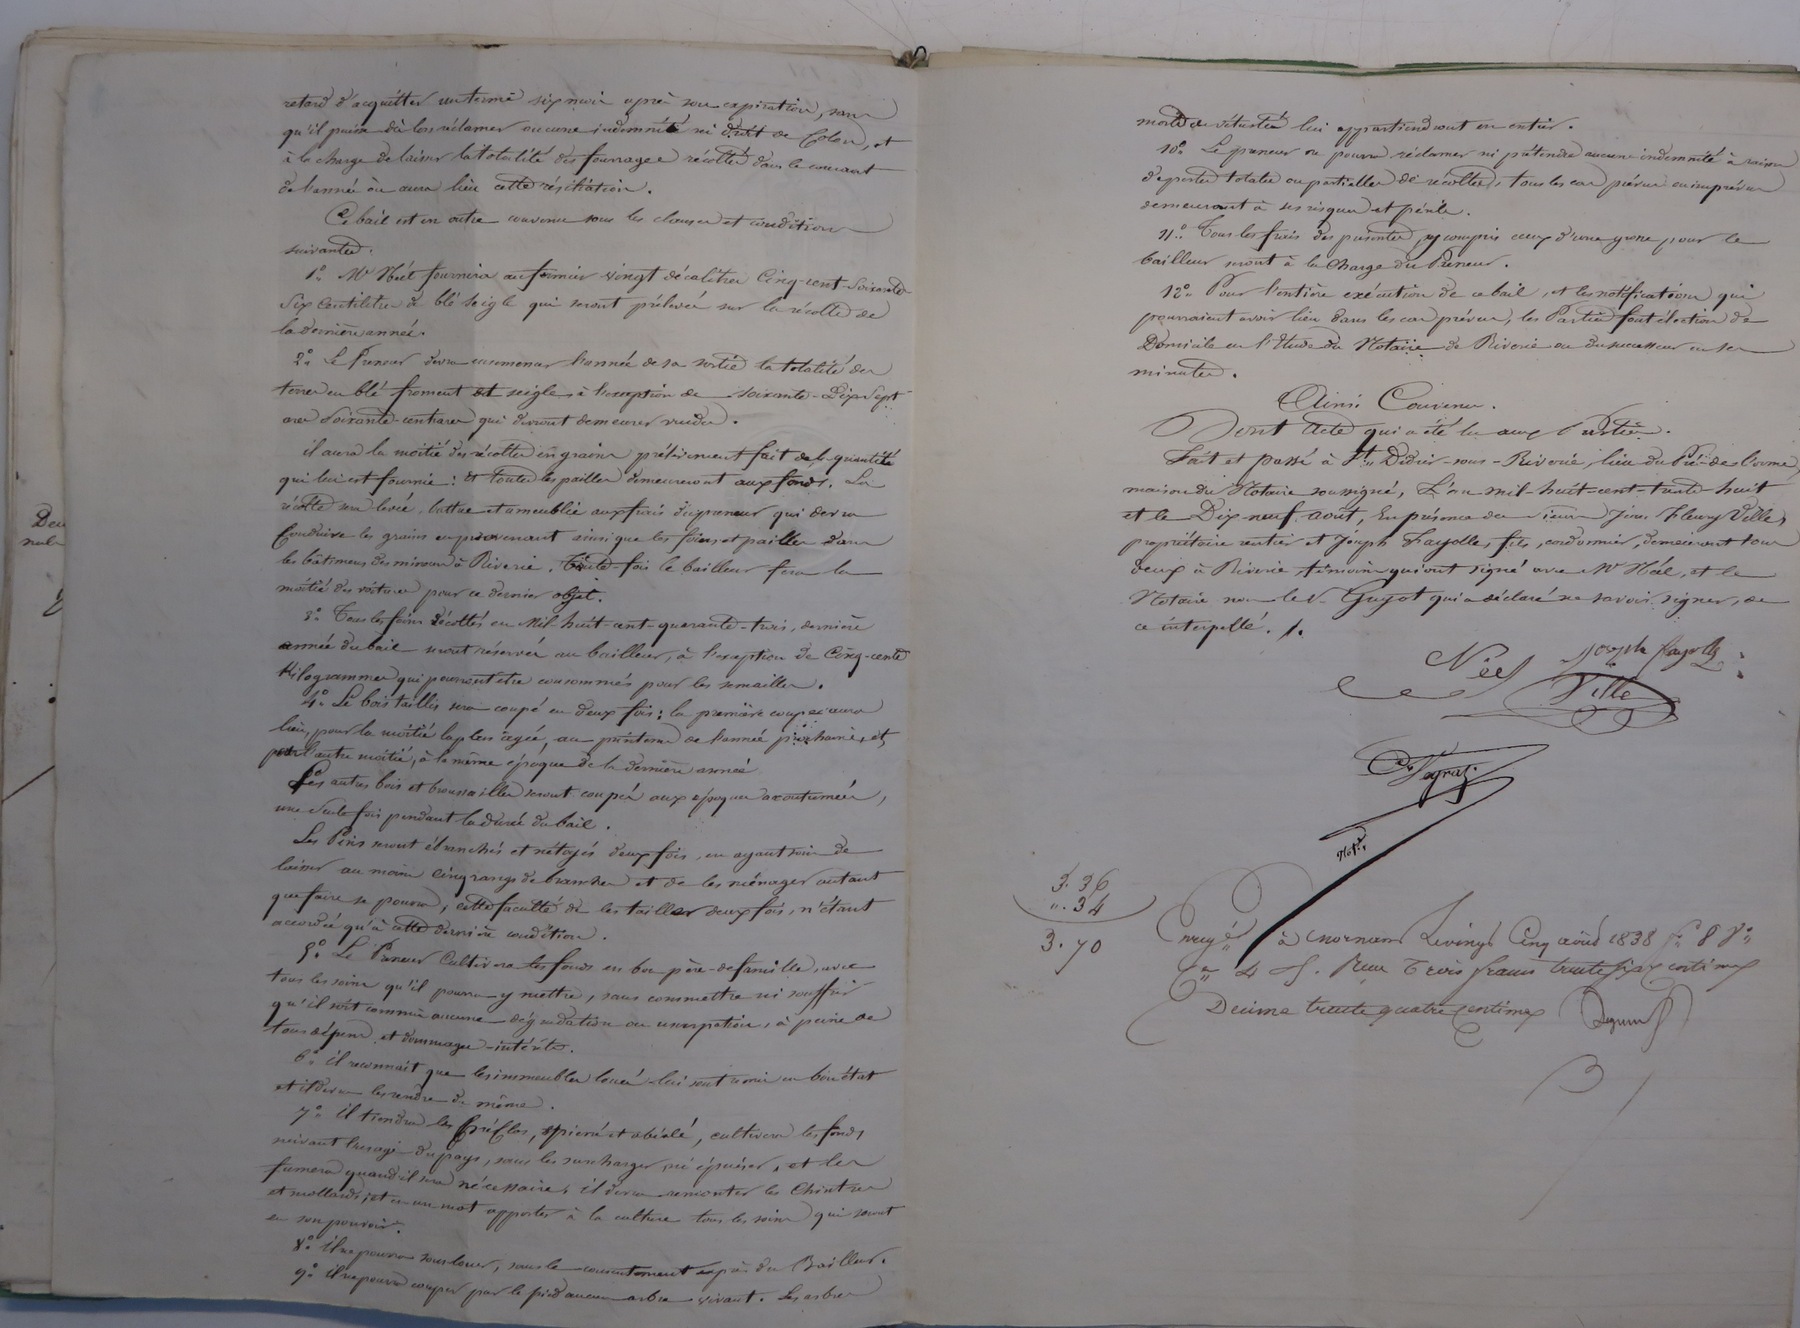 retard d'acquitter un terme six mois après son expiration, sans
qu'il puisse dès lors réclamer aucune indemnité ni droit de Colon, et
à la charge de laisser la totalité des fourrages récoltés dans le courant
de l'année où aura lieu cette résiliation.
Ce bail est en outre convenu sous les clauses et conditions
suivantes.
1.° Mr Néel fournira au fermier vingt décalitres Cinq-cent-soixante
Six centilitres de blé seigle qui seront prélevés sur la récolte de
la dernière année.
2.° Le Preneur devra ensemencer l'année de sa sortie la totalité des
terres en blé froment et seigle, à l'exception de soixante-Dix-Sept
ares Soixante centiares qui devront demeurer vuides.
il aura la moitié des récoltes en grains prélèvement fait de la quantité
qui lui est fournie: et toutes les pailles demeureront aux fonds. La
récolte sera levée, battue et ameublée aux frais du preneur qui devra
Conduire les grains en provenant ainsi que les foins et pailles dans
les bâtimens du mineur à Riverie. Toute-fois le bailleur fera la
moitié des voitures pour ce dernier objet.
3.° Tous les foins récoltés en mil-huit-cent-quarante-trois, dernière
année du bail seront réservés au bailleur, à l'exception de Cinq-cents
Kilogrammes qui pourront être consommés pour les semailles.
4.° Le bois taillis sera coupé en deux fois: la première coupe aura
lieu, pour la moitié la plus âgée, au printems de l'année prochaine, et
pour l'autre moitié, à la même époque de la dernière année
Les autres bois et broussailles seront coupés aux époques accoutumées,
une seule fois pendant la durée du bail.
Les Pins seront ébranchés et nétoyés deux fois, en ayant soin de
laisser au moins cinq rangs de branches et de les ménager autant
que faire se pourra, cette faculté de les tailler deux fois, n'étant
accordée qu'à cette dernière condition.
5.° Le Preneur Cultivera les fonds en bon père-de famille, avec
tous les soins qu'il pourra y mettre, sans commettre ni souffrir
qu'il soit commis aucune dégradation ou usurpation, à peine de
tous dépens et dommages-intérêts.
6.° il reconnait que les immeubles loués lui sont remis en bon état
et il devra les rendre de même.
7.° il tiendra les Prés Clos, épierrés et abéalé, cultivera les fonds
suivant l'usage du pays, sans les surcharger ni épuiser, et les
fumera quand il sera nécessaire, il devra remonter les Chintres
et mollards; et en un mot apporter à la culture tous les soins qui seront
en son pouvoir.
8.° il ne pourra sous-louer, sans le consentement exprès du Bailleur.
9.° il ne pourra couper par le pied aucun arbre vivant. Les arbres
morts de vétusté lui appartiendront en entier.
10.° Le preneur ne pourra réclamer ni prétendre aucune indemnité à raison
de pertes totales ou partielles de récoltes, tous les cas prévus ou imprévus
demeurant à ses risques et périls.
11.° Tous les frais des présentes, y compris ceux d'une grosse pour le
bailleur seront à la Charge du Preneur.
12.° Pour l'entière exécution de ce bail, et les notifications qui
pourraient avoir lieu dans les cas prévus, les Parties font élection de
Domicile en l'étude du Notaire de Riverie ou du successeur en ses
minutes.
Ainsi Convenu.
Dont Acte qui a été lu aux Parties.
Fait et passé à St. Didier-sous-Riverie, lieu du Pré-de l'orme,
maison du Notaire soussigné, L'an mil-huit-cent-trente-huit
et le Dix-neuf août, En présence des sieurs Jean Fleury Ville,
propriétaire rentier et Joseph Fayolle, fils, cordonnier, demeurant tous
deux à Riverie, témoins qui ont signé avec Mr Néel, et le
Notaire non led. Guyot qui a déclaré ne savoir signer, de
ce interpellé. /.
Néel
Joseph fayolle
Ville
Not.re
3. 36
". 34
3. 70
Enregé à mornant Le vingt Cinq août 1838 f.° 8 V.°
C.es 4 et f. Reçu Trois francs trente six centimes
Decime trente quatre centimes